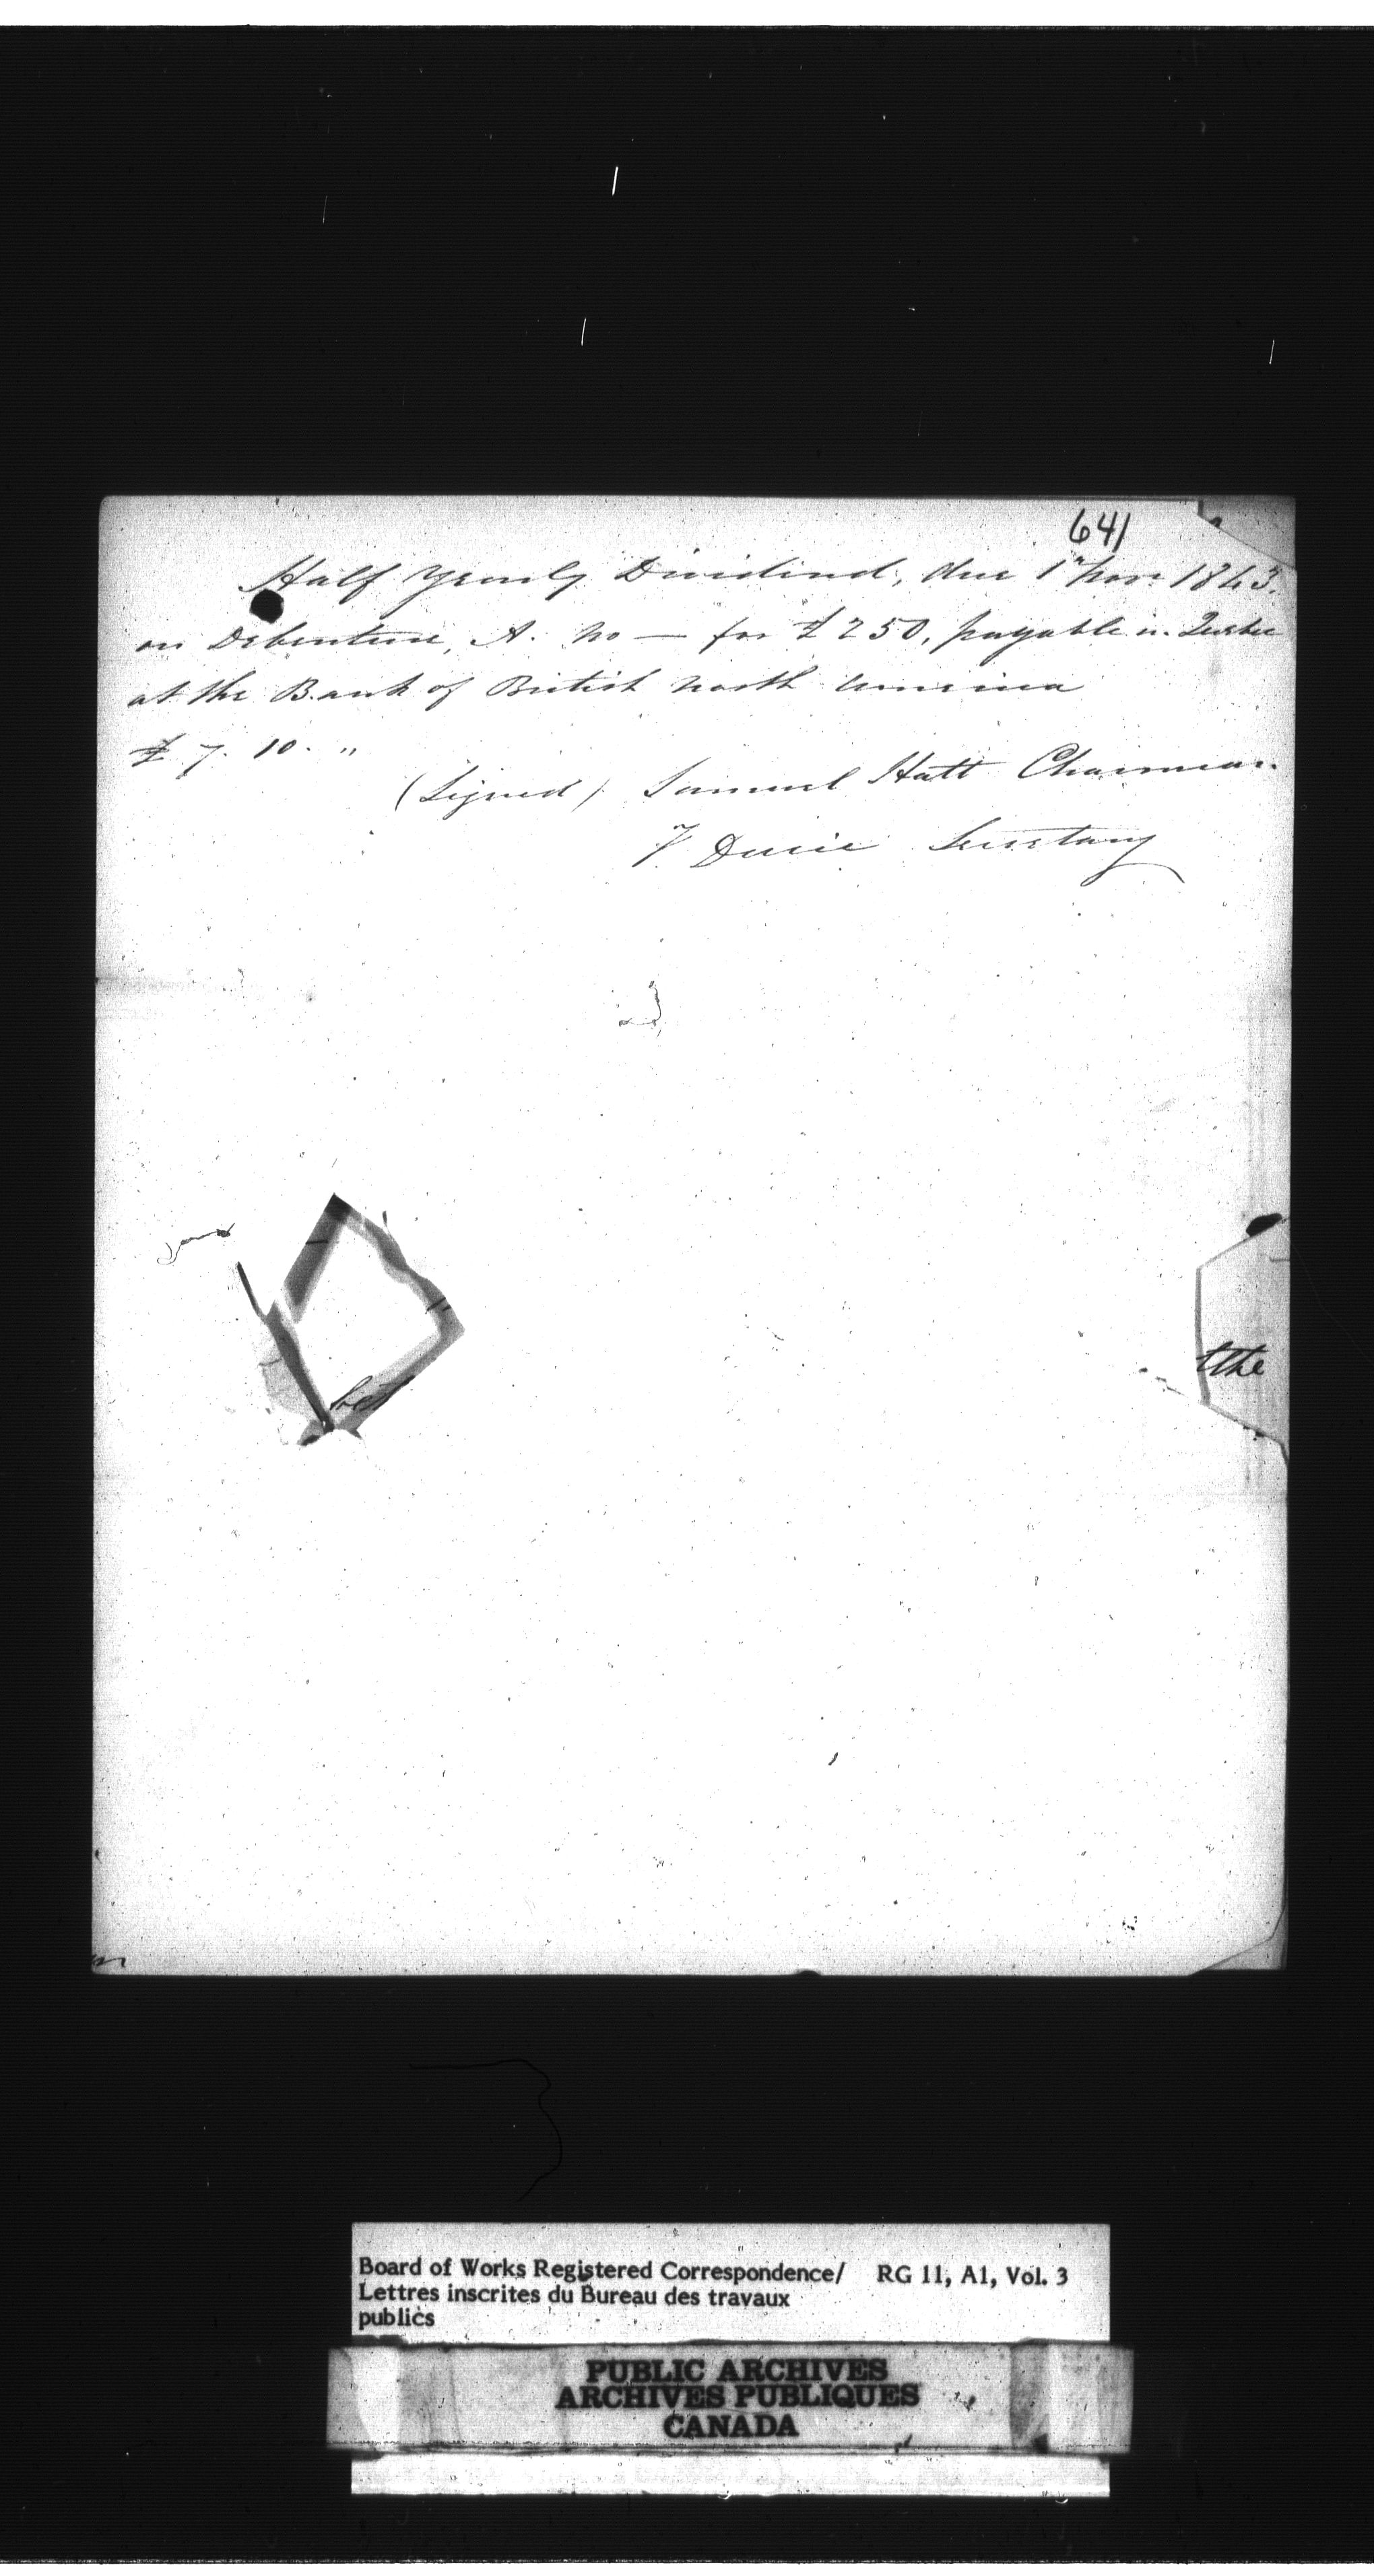 641
Half Yearly Dividend, due 1st Nov. 1843.
on Debenture, A. No — for £250, payable in Quebec
at the Bank of British North America
£ 7. 10. "
(Signed) Samuel Hatt Chairman
Secretary
the
Board of Works Registered Correspondence/ RG 11, A1, Vol. 3
Lettres inscrites du Bureau des travaux
publics
PUBLIC ARCHIVES
ARCHIVES PUBLIQUES
CANADA